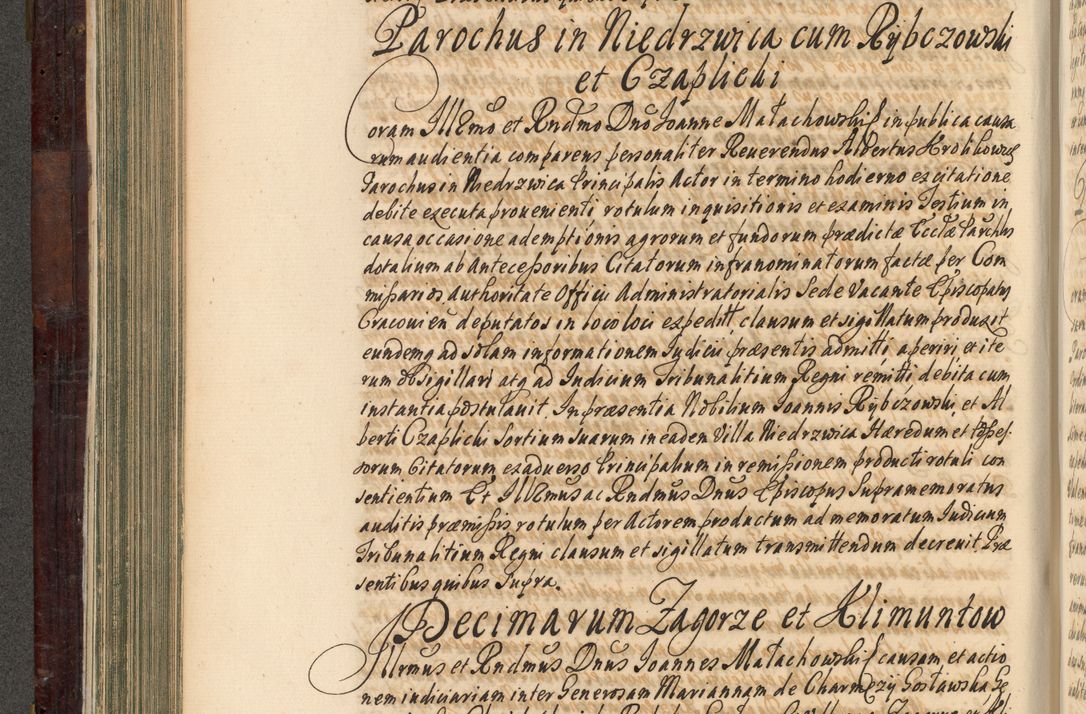 Parochus in Niedrzwica cum Rybczowski
et Czaplicki
Coram Illẽmo et Rndmo Dno Ioanne Małachowski in publica causa
rum audientia comparens personaliter Reuerendus Albertus Krolikowicz
Parochus in Niedrzwica Principalis Actor in termino hodierno ex citatione
debite executa prouenienti, rotulum inquisitionis et examinis Testium in
causa occasione ademptionis agrorum et fundorum prædictæ Ecclæ Parchlis
dotalium ab Antecessoribus Citatorum infranominatorum factæ per Com
missarios authoritate Officii Administratorialis Sede Vacante Episcopatus
Cracouien deputatos in loco loci expeditt clausum et sigillatum produxit
eundemq ad solam informationem Iudicii præsentis admitti aperiri, et ite
rum obsigillari atq ad Iudicium Tribunalitium Regni remitti debita cum
instantia postulauit. In præsentia Nobilium Ioannis Rybczowski, et Al
berti Czaplicki Sortium suarum in eaden Villa Niedrzwica Hæredum et Posses
sorum Citatorum ex aduerso Principalium in remissionem producti rotuli con
sentientium Et Illẽmus ac Rndmus Dnus Episcopus Supramemoratus
auditis præmissis rotulum per Actorem productum ad memoratum Iudicium
Tribunalitium Regni clausum et sigillatum transmittendum decreuit. Præ
sentibus quibus supra.
Decimarum Zagorze et Klimuntow
Illrmus et Rndmus Dnus Ioannes Małachowski causam et actio
nem iudiciariam inter Generosam Mariannam de Charmęzy Gosławska